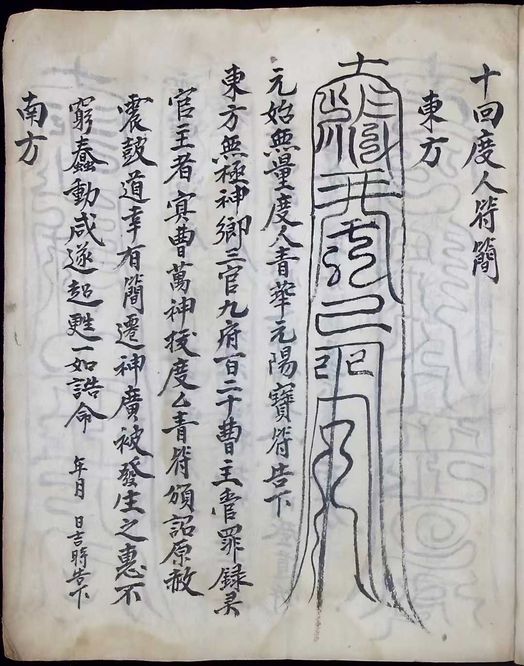 十回度人符簡
東方
元始無量度人青華元陽寶符告下
東方無極神鄉三官九府百二十曹主者罪錄
官主者 冥曹萬神 度厶青符頒詔原赦
震鼓道幸有簡遷神廣被發生之惠不
窮蠢動咸遂超甦一如誥命 年月 日吉時告下
南方